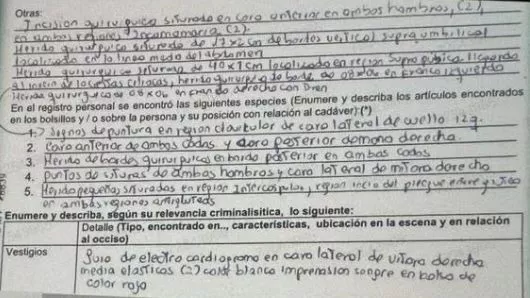 Otras:
Incision quirurquica situradas en cara anterior en ambos hombros, (2),
en ambas regiones Incamamaria (2).
Herida quirurquica siturada de 17x2 cm de bordes vertical supra umbilical
localizada en la linea media del abdomen
Herida quirurquica siturada de 40x1 cm localizada en region supra pubica llegando
al inicio de crestas, herida quirurgica de borde de en franco izquierdo
Herida quirurgica de 06x06 en franco derecho con Dren
En el registro personal se encontró las siguientes especies (Enumere y describa los artículos encontrados
en los bolsillos y / o sobre la persona y su posición con relación al cadáver):(*)
1. Signos de puntura en region clavicular de cara lateral de cuello izq.
2. Cara anterior de ambos codos y cara posterior de mano derecha.
3. Herida de bordes quirurquicos en borde posterior en ambas codos
4. puntos de situras de ambas hombros y cara lateral de derecha
5. Herida pequeñas situradas en region Interescapular, region inicio del pliegue
en ambas regiones
Enumere y describa, según su relevancia criminalisitica, lo siguiente:
Detalle (Tipo, encontrado en.., características, ubicación en la escena y en relación
al occiso)
Vestigios
Guia de electro cardiograma en cara lateral de derecha
media elasticas (2) color blanco impregnacion sangre en bolsa de
color rojo